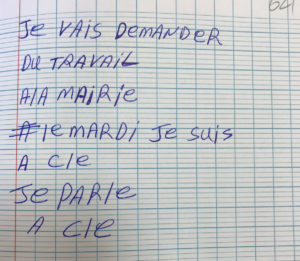 64
Je VAIS DeMANDER
DU TRAVAIL
A/A MAiRie
# le MARDI Je suis
A Cle
Je PARle
A Cle